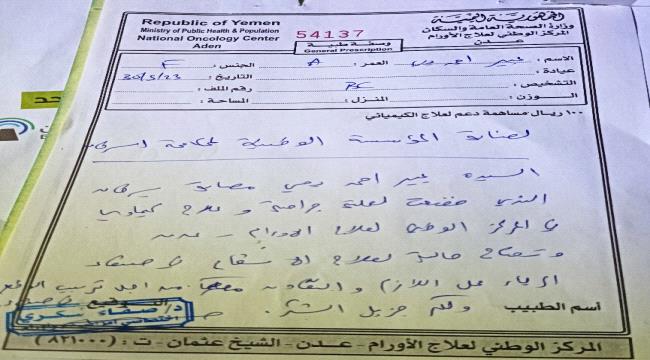 Republic of Yemen
Ministry of Public Health & Population
National Oncology Center
Aden
54137
وصفة طبية
General Prescription
الجمهورية اليمنية
وزارة الصحة العامة والسكان
المركز الوطني لعلاج الأورام
عدن
الاسم: عبير احمد العمر: A الجنس: F
عيادة: التاريخ: 30/5/23
التشخيص: BC رقم الملف:
الوزن: المنزل: المساحة:
١٠٠ ريال مساهمة دعم لعلاج الكيميائي
المؤسسة الوطنية لمكافحة السرطان
السيدة عبير احمد مصابة بسرطان
الثدي خضعت لعملية جراحية و علاج كيماوي
في المركز الوطني لعلاج الاورام - عدن
وتحتاج حاليا لعلاج الاشعاع في صنعاء
الرجاء عمل اللازم والتعاون معكم من اجل ترتيب
ولكم جزيل الشكر
اسم الطبيب التوقيع
د/ صفاء سكري
المركز الوطني لعلاج الأورام - عدن - الشيخ عثمان - ت: (٨٢١٠٠٠)